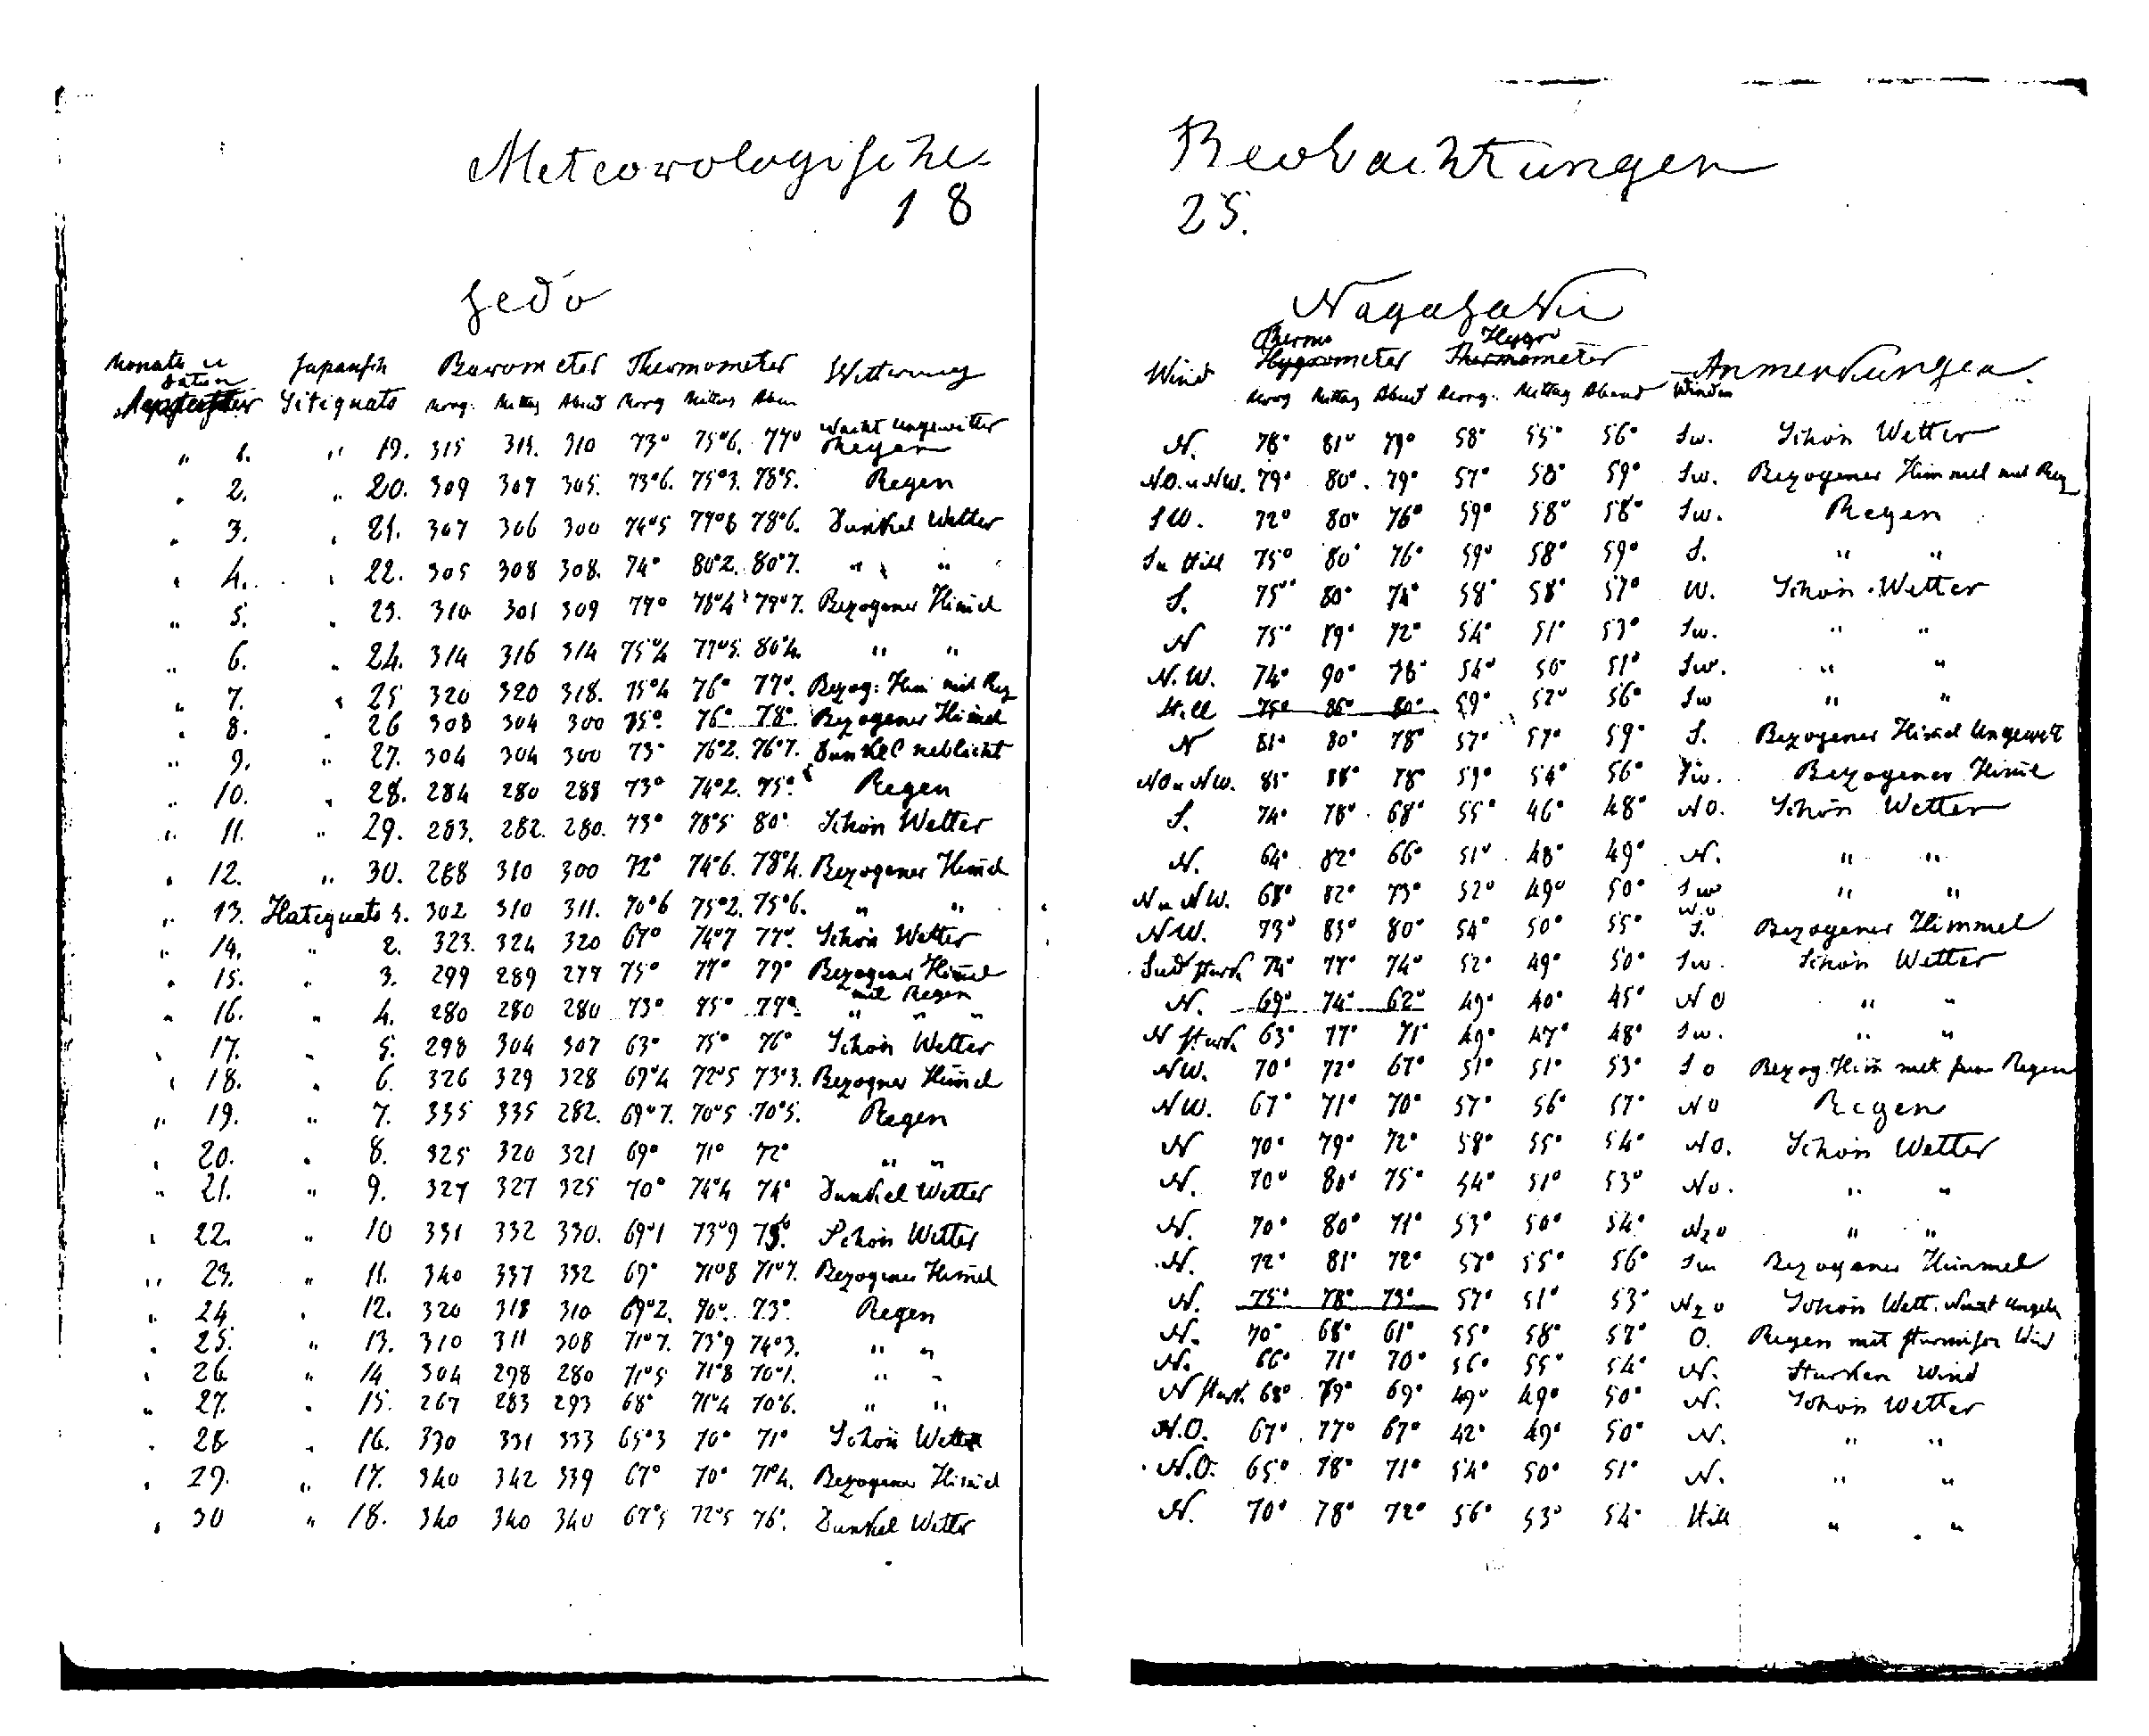 Meteorologische
18
Jedo
Monats u Japanisch Barometer Thermometer Witterung
Datum
September Sitiguats Morg. Mittag Abend Morg Mittag Aben
" 1. " 19. 315 315. 310 73° 75°6. 77° Nacht Ungewitter Regen
" 2. " 20. 309 307 305. 73°6. 75°3. 78°5. Regen
" 3. " 21. 307 306 300 74°5 77°8 78°6. Dunkel Wetter
" 4. " 22. 305 308 308. 74° 80°2. 80°7. " "
" 5. " 23. 310 301 309 77° 78°4 79°7. Bezogener Himel
" 6. " 24. 314 316 314 75°4 77°5. 80°4. " "
" 7. " 25 320 320 318. 75°4 76° 77°. Bezog: Him mit Reg
" 8. " 26 308 304 300 75°. 76° 78° Bezogener Himel
" 9. " 27. 304 304 300 73° 76°2. 76°7. Dunkel neblicht
" 10. " 28. 284 280 288 73° 74°2. 75° Regen
" 11. " 29. 283. 282. 280. 73° 78°5 80° Schön Wetter
" 12. " 30. 288 310 300 72° 74°6. 78°4. Bezogener Himel
" 13. Hatiguats 1. 302 310 311. 70°6 75°2. 75°6. " "
" 14. " 2. 323. 324 320 67° 74°7 77°. Schön Wetter
" 15. " 3. 299 289 277 75° 77° 79° Bezogener Himel
mit Regen
" 16. " 4. 280 280 280 73° 75° 77° " " "
" 17. " 5. 298 304 307 63° 75° 76° Schön Wetter
" 18. " 6. 326 329 328 69°4 72°5 73°3. Bezogner Himel
" 19. " 7. 335 335 282. 69°7. 70°5 70°5. Regen
" 20. " 8. 325 320 321 69° 71° 72° " "
" 21. " 9. 327 327 325 70° 74°4 74° Dunkel Wetter
" 22. " 10 331 332 330. 69°1 73°9 75. Schön Wetter
" 23. " 11. 340 337 332 69° 71°8 71°7. Bezogener Himel
" 24 " 12. 320 318 310 69°2. 70°. 73° Regen
" 25. " 13. 310 311 308 71°7. 73°9 74°3. " "
" 26. " 14 304 298 280 71°5 71°8 70°1. " "
" 27. " 15. 267 283 293 68° 71°4 70°6. " "
" 28 " 16. 330 331 333 65°3 70° 71° Schön Wetter
" 29. " 17. 340 342 339 67° 70° 71°4. Bezogener Himel
" 30 " 18. 340 340 340 67°5 72°5 76°. Dunkel Wetter
Beobachtungen
25.
Nagasaki
Thermo Hygro
Wind Hygrometer Thermometer Anmerkungen.
Morg Mittag Abend Morg. Mittag Abend Winde
N. 78° 81° 79° 58° 55° 56° Sw. Schön Wetter
NO. u NW. 79° 80°. 79° 57° 58° 59° Sw. Bezogener Himmel mit Reg
SW. 72° 80° 76° 59° 58° 58° Sw. Regen
S u still 75° 80° 76° 59° 58° 59° S. " "
S. 75° 80° 74° 58° 58° 57° W. Schön Wetter
N 75° 89° 72° 54° 51° 53° Sw. " "
N.W. 74° 90° 78° 54° 50° 51° Sw. " "
still 75° 86° 80° 59° 52° 56° Sw " "
N 81° 80° 78° 57° 57° 59° S. Bezogener Himel Ungewit
NO u NW. 85° 88° 78° 59° 54° 56° Sw. Bezogener Himel
S. 74° 78° 68° 55° 46° 48° NO. Schön Wetter
N. 64° 82° 66° 51° 48° 49° N. " "
N u NW. 68° 82° 73° 52° 49° 50° Sw " "
NW. 73° 83° 80° 54° 50° 55° W.O. S. Bezogener Himmel
Sud stark 74° 77° 74° 52° 49° 50° Sw. Schön Wetter
N. 69° 74° 62° 49° 40° 45° NO " "
N stark 63° 77° 71° 49° 47° 48° Sw. " "
NW. 70° 72° 67° 51° 51° 53° So Bezog. Him mit Regen
NW. 67° 71° 70° 57° 56° 57° NO Regen
N 70° 79° 72° 58° 55° 54° NO. Schön Wetter
N. 70° 80° 75° 54° 51° 53° No. " "
N. 70° 80° 71° 53° 50° 54° NzO " "
N. 72° 81° 72° 57° 55° 56° Sw Bezogener Himmel
N. 75° 78° 73° 57° 51° 53° NzO Schön Wett. Nacht Ungew
N. 70° 68° 61° 55° 58° 57° O. Regen mit sturmischer Wind
N. 66° 71° 70° 56° 55° 54° N. Starken Wind
N stark 68° 79° 69° 49° 49° 50° N. Schön Wetter
N.O. 67° 77° 67° 42° 49° 50° N. " "
N.O. 65° 78° 71° 54° 50° 51° N. " "
N. 70° 78° 72° 56° 53° 54° still " "